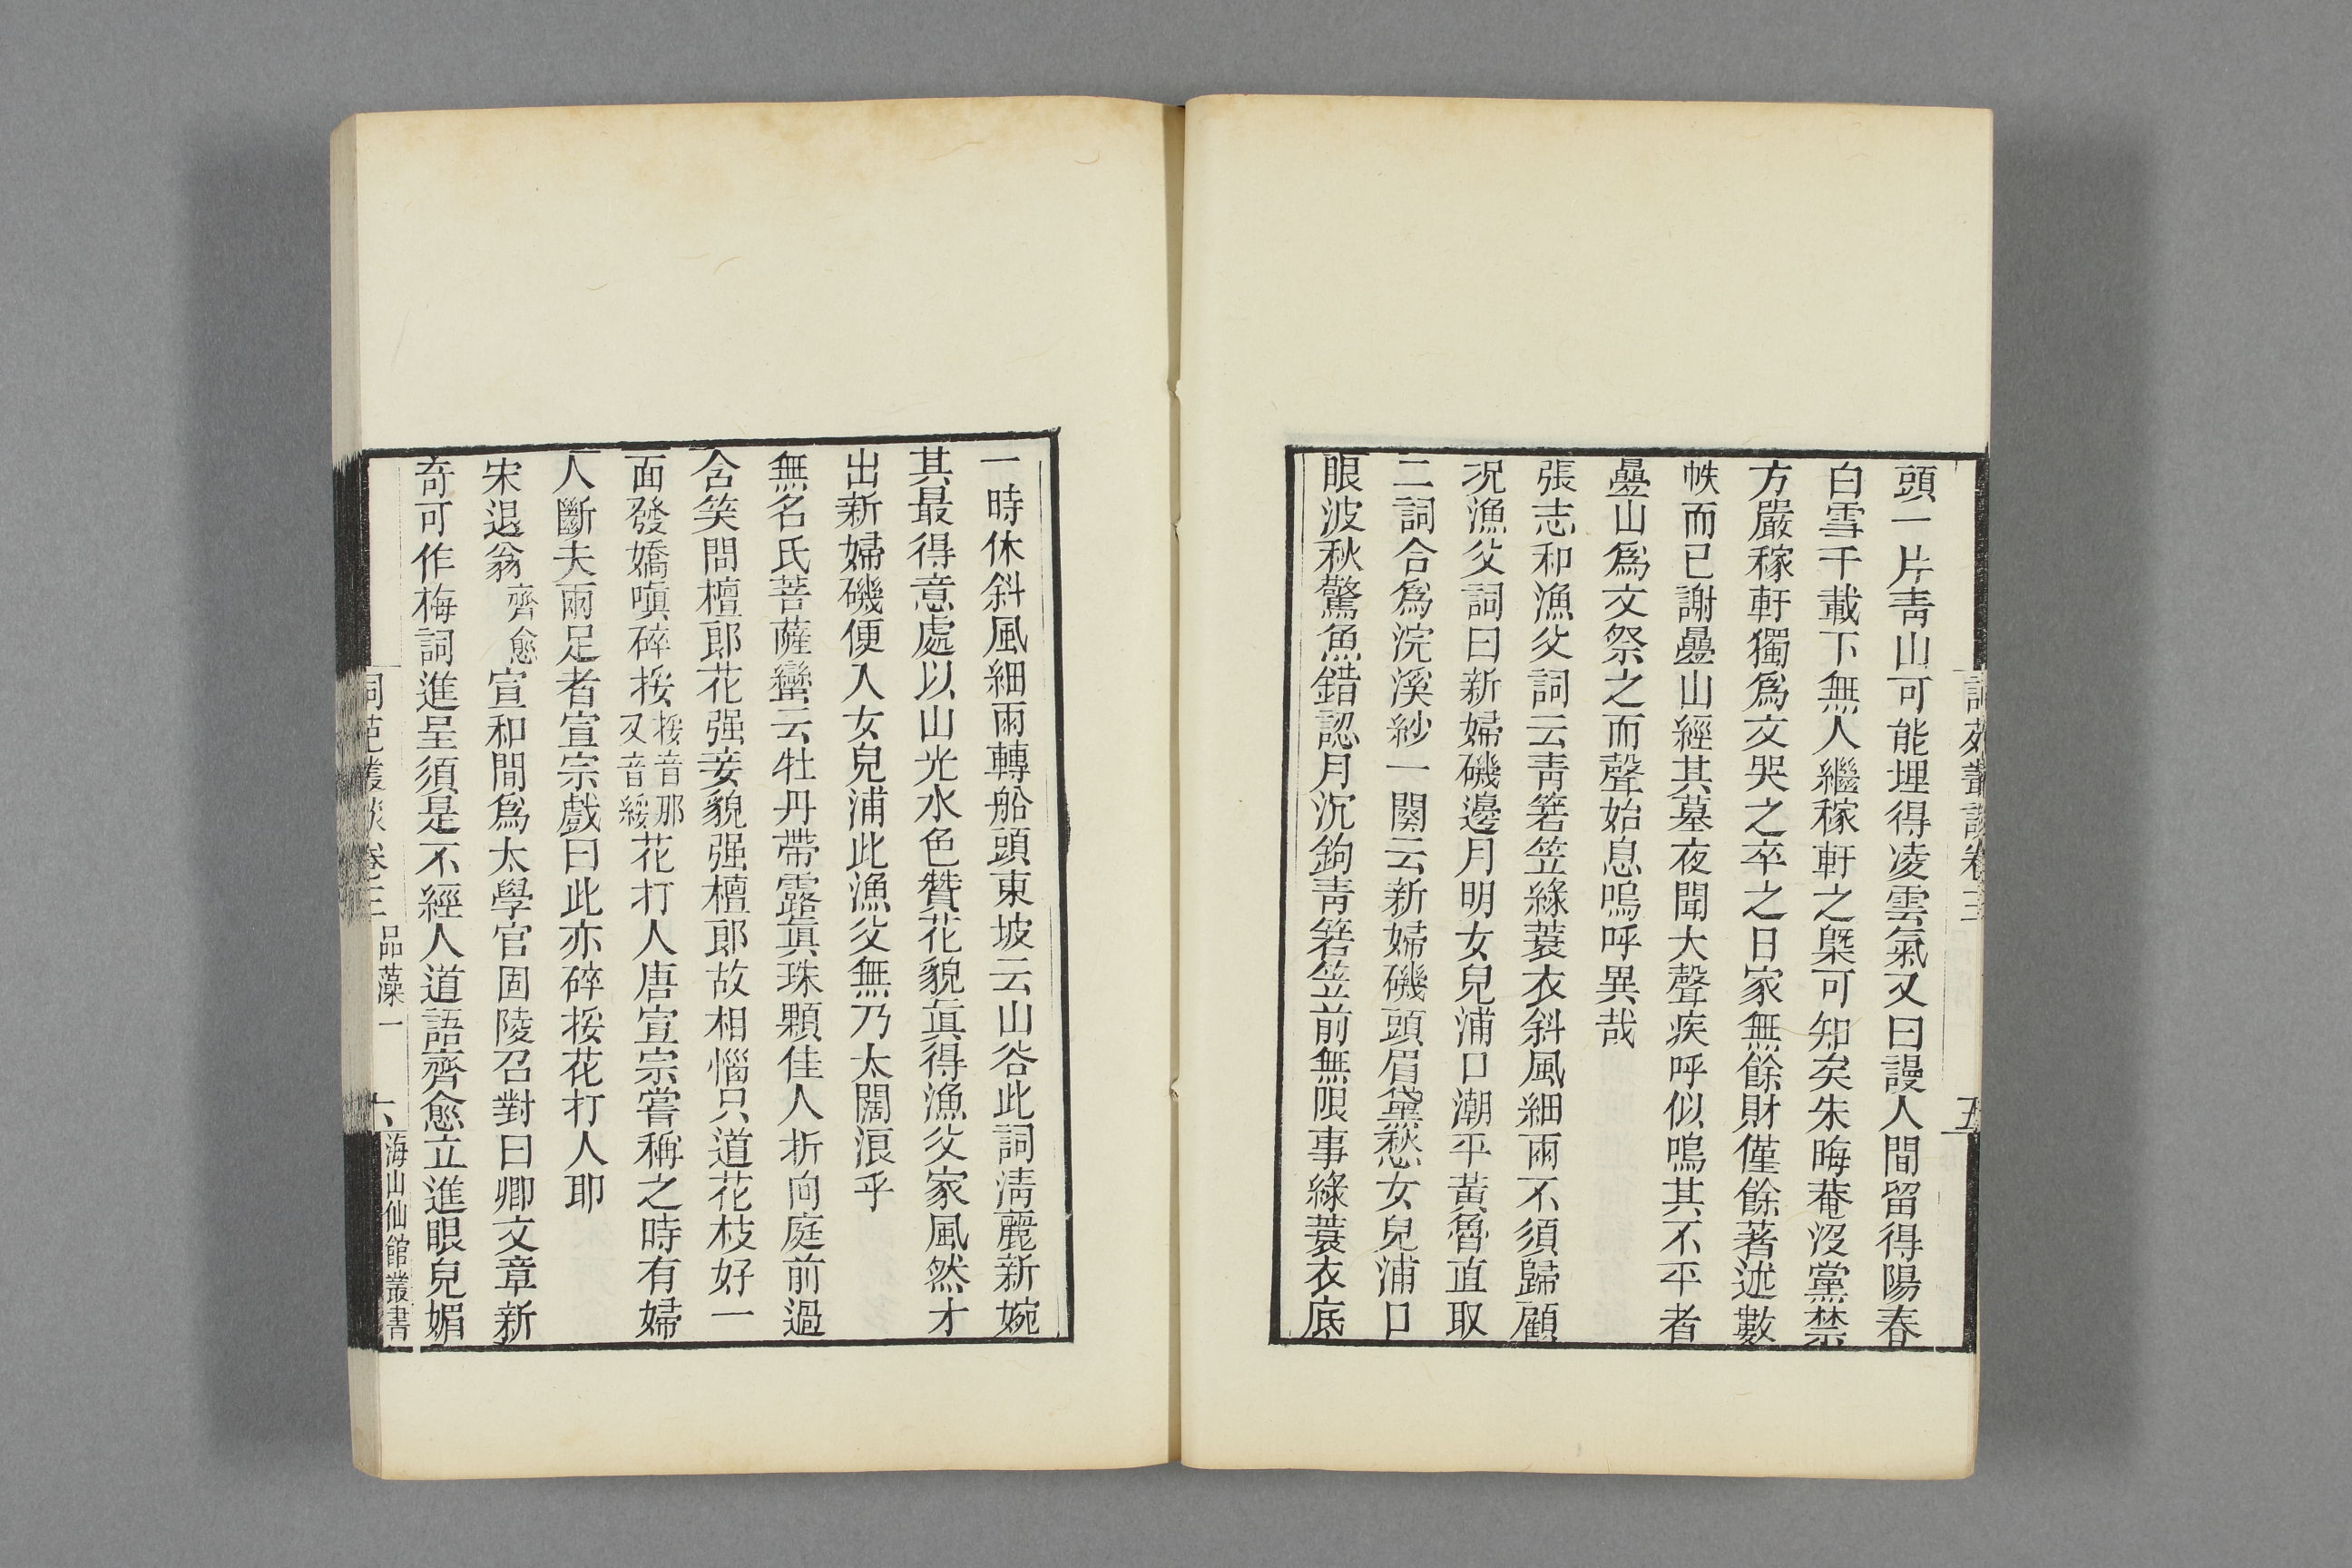 詞苑叢談卷三
五
頭一片靑山可能埋得凌雲氣又曰謾人間留得陽春
白雪千載下無人繼稼軒之槩可知矣朱晦菴沒黨禁
方嚴稼軒獨爲文哭之卒之日家無餘財僅餘著述數
帙而已謝疊山經其墓夜聞大聲疾呼似鳴其不平者
疊山爲文祭之而聲始息嗚呼異哉
張志和漁父詞云靑箬笠綠蓑衣斜風細雨不須歸顧
況漁父詞曰新婦磯邊月明女兒浦口潮平黃魯直取
二詞合爲浣溪紗一闋云新婦磯頭眉黛愁女兒浦口
眼波秋驚魚錯認月沉鉤靑箬笠前無限事綠蓑衣底
一時休斜風細雨轉船頭東坡云山谷此詞淸麗新婉
其最得意處以山光水色贊花貌眞得漁父家風然才
出新婦磯便入女兒浦此漁父無乃太闊浪乎
無名氏菩薩蠻云牡丹帶露眞珠顆佳人折向庭前過
含笑問檀郎花强妾貌强檀郎故相惱只道花枝好一
面發嬌嗔碎挼挼音那又音綏花打人唐宣宗嘗稱之時有婦
人斷夫兩足者宣宗戲曰此亦碎挼花打人耶
宋退翁齊愈宣和間爲太學官固陵召對曰卿文章新
奇可作梅詞進呈須是不經人道語齊愈立進眼兒媚
詞苑叢談卷三 品藻一
六
海山仙館叢書